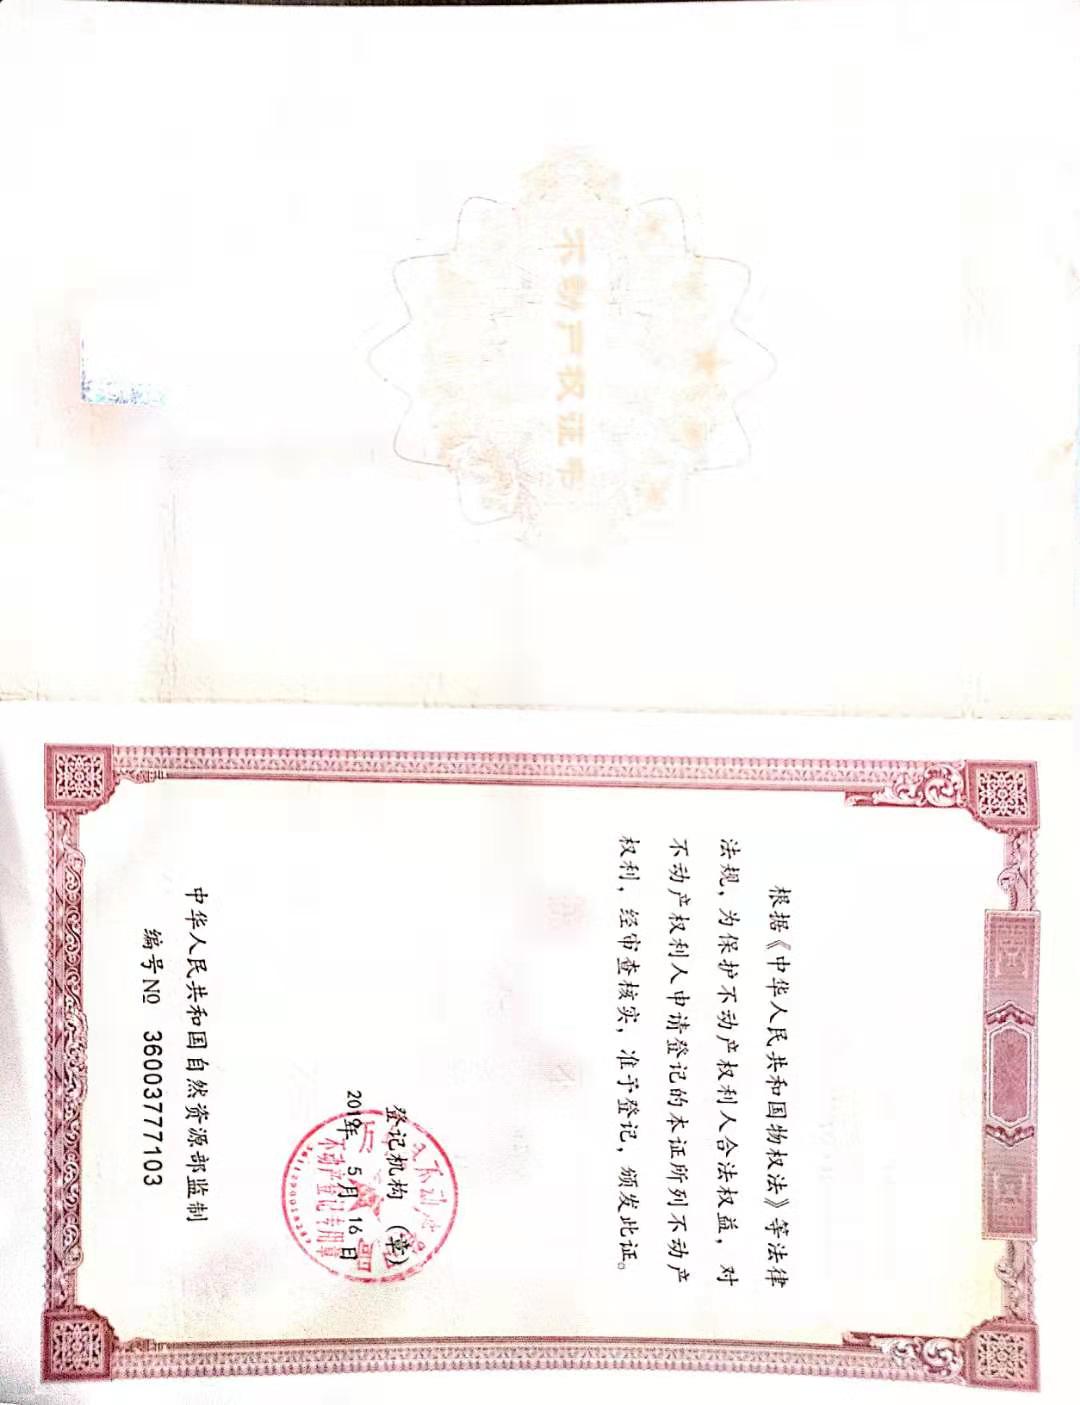 不动产权证书
根据《中华人民共和国物权法》等法律
法规，为保护不动产权利人合法权益，对
不动产权利人申请登记的本证所列不动产
权利，经审查核实，准予登记，颁发此证。
登记机构（章）
2019年 5月 16日
不动产登记专用章
中华人民共和国自然资源部监制
编号№ 36003777103